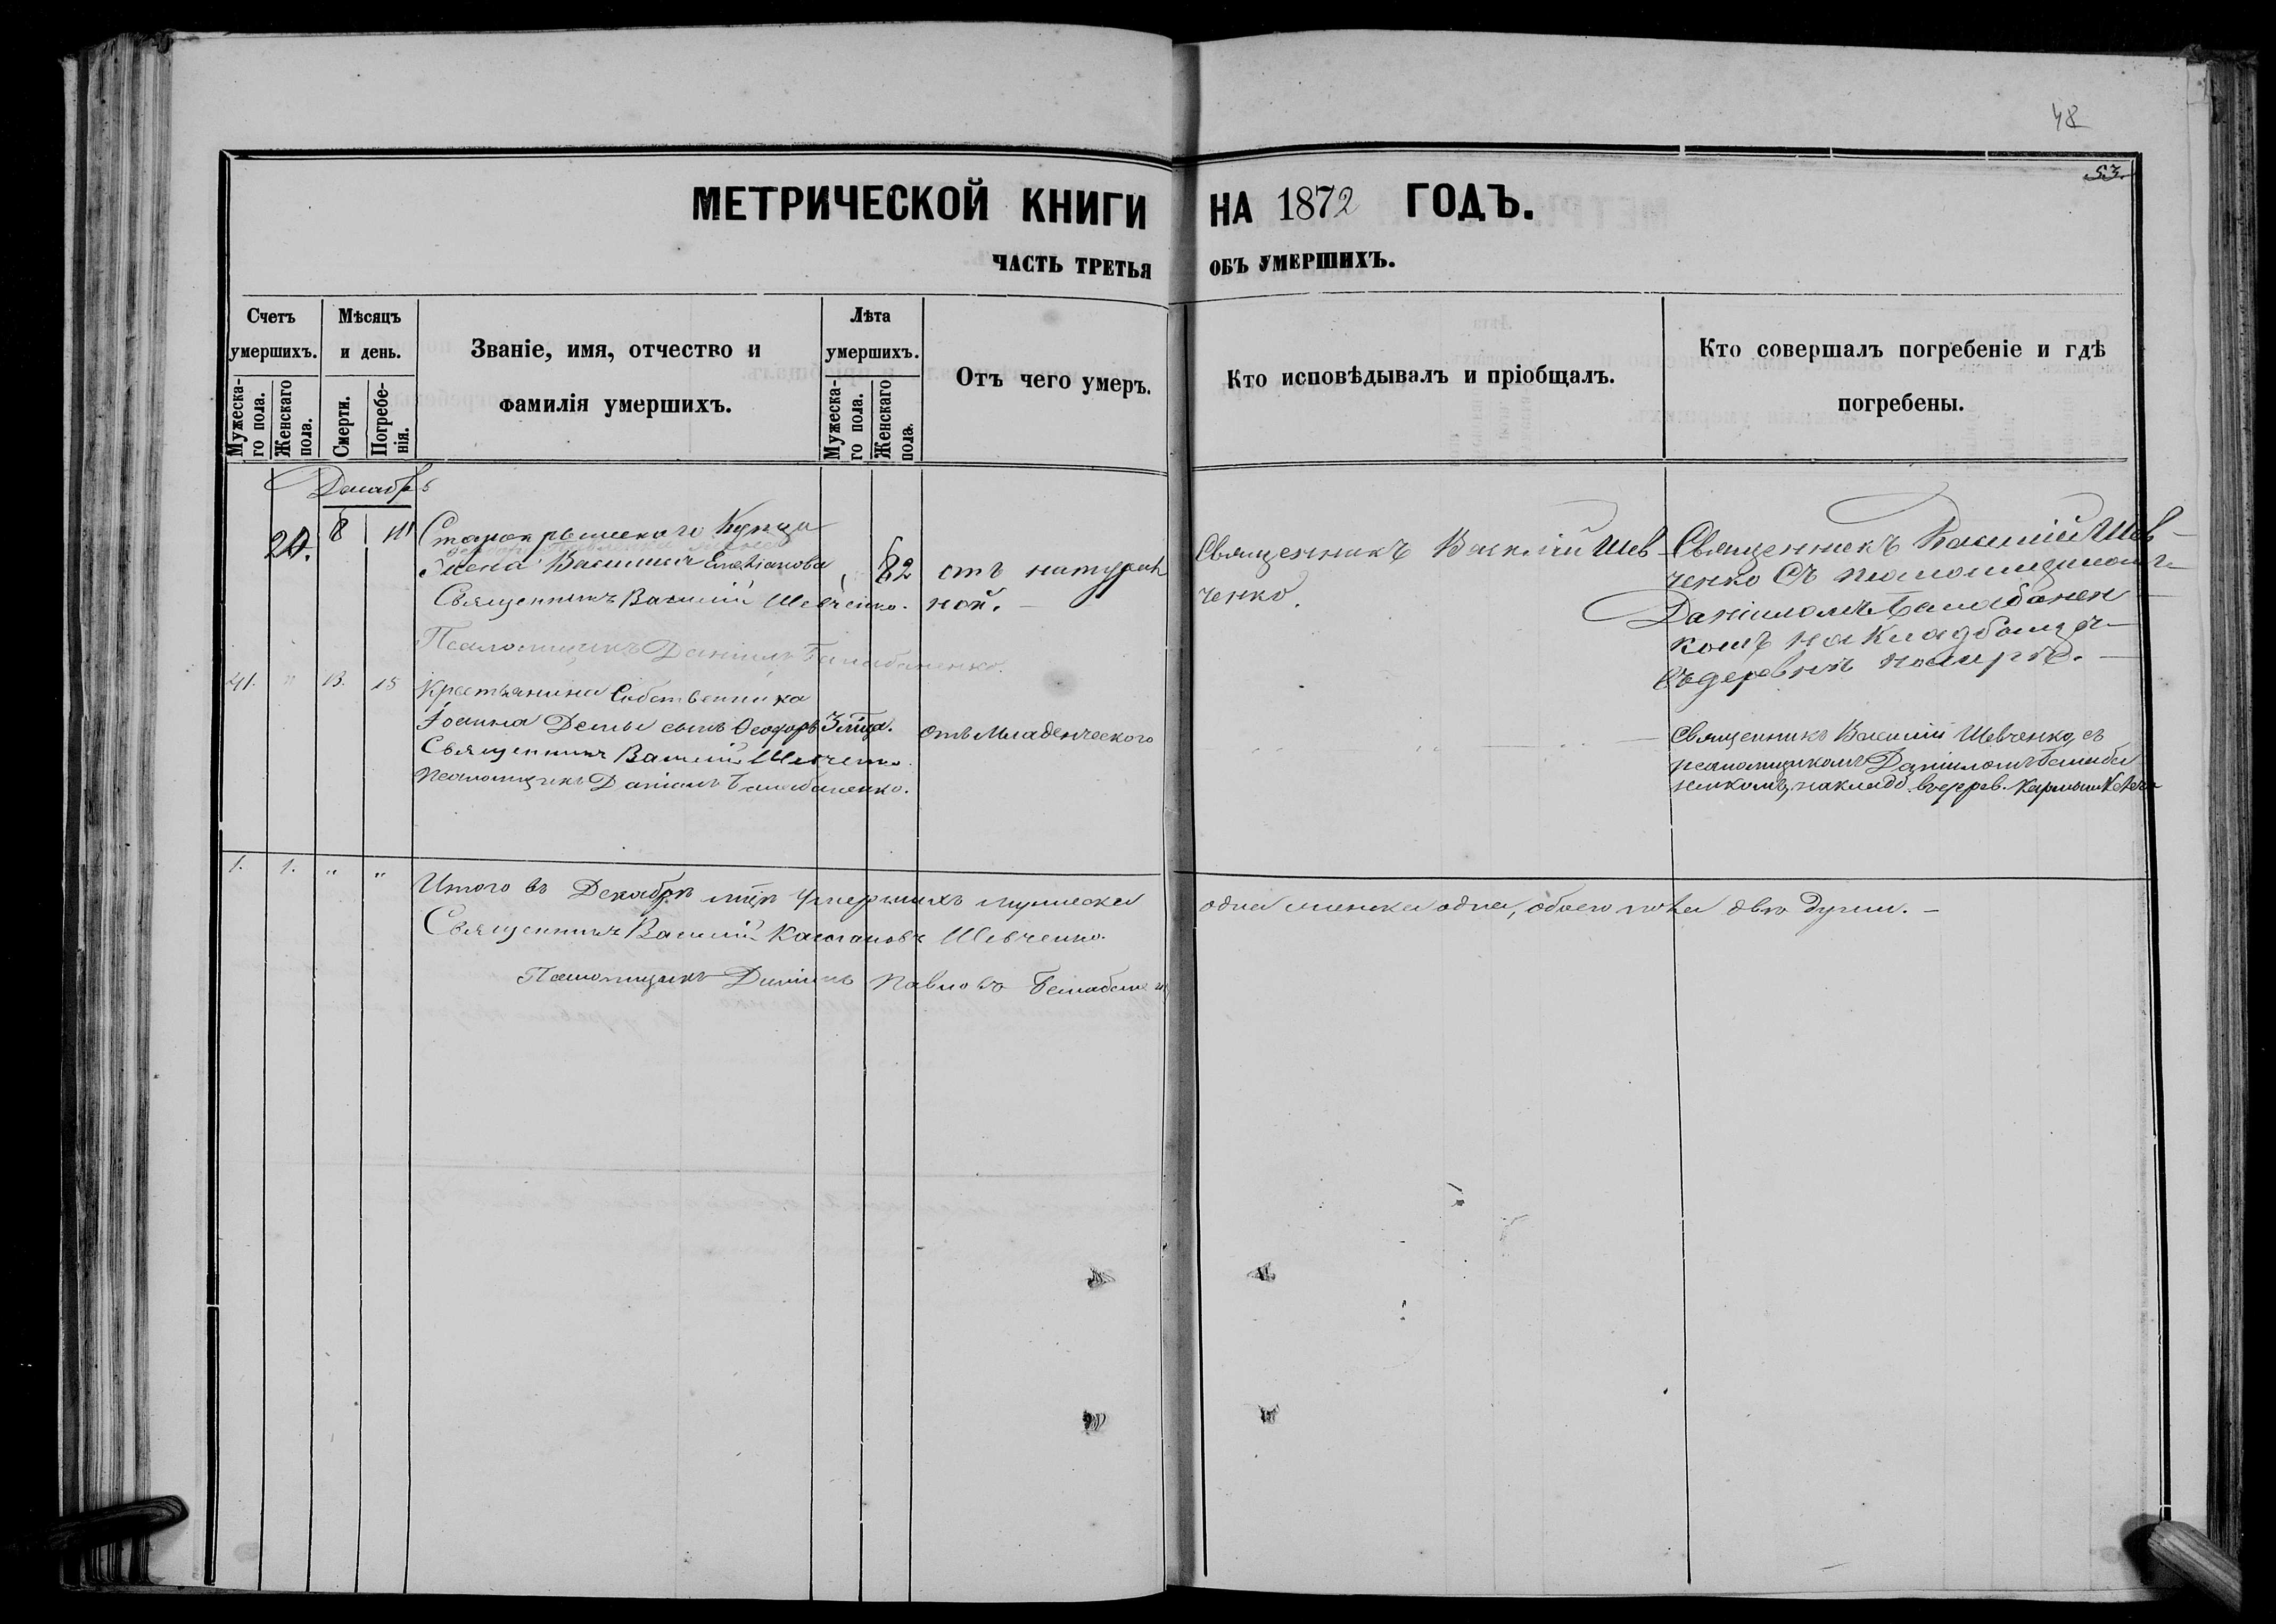 48
53.
МЕТРИЧЕСКОЙ КНИГИ НА 1872 ГОДЪ.
ЧАСТЬ ТРЕТЬЯ ОБЪ УМЕРШИХЪ.
Счетъ умершихъ.
Мужеска-го пола.
Женскаго пола.
Мѣсяцъ и день.
Смерти.
Погребе-нія.
Званіе, имя, отчество и
фамилія умершихъ.
Лѣта умершихъ.
Мужеска-го пола.
Женскаго пола.
Отъ чего умеръ.
Кто исповѣдывалъ и пріобщалъ.
Кто совершалъ погребеніе и гдѣ
погребены.
Декабрь
8
Старокрымскаго Купца
Василія
82
отъ натураль
ной.
Священникъ Василій Шевченко.
Псаломщикъ Даніилъ Балабаненко.
Священникъ Василій Шев-
ченко.
Священникъ Василій Шев-
ченко съ псаломщикомъ
Даніиломъ Балабанен-
комъ на кладбищѣ
въ деревнѣ
41. " 13. 15
Крестьянина Собственника
Іоанна сынъ Ѳеодоръ
3 мѣц.
отъ Младенческого
Священникъ Василій Шевченко.
Псаломщикъ Даніилъ Балабаненко.
Священникъ Василій Шевченко, съ
псаломщикомъ Даніиломъ Балаба
ненкомъ, на кладб. въ дерев.
1. 1. " "
Итого въ Декабрѣ мцѣ умершихъ мужеска одна женска одна, обоего пола двѣ души. —
Священникъ Василій Шевченко.
Псаломщикъ Даніилъ Павловъ